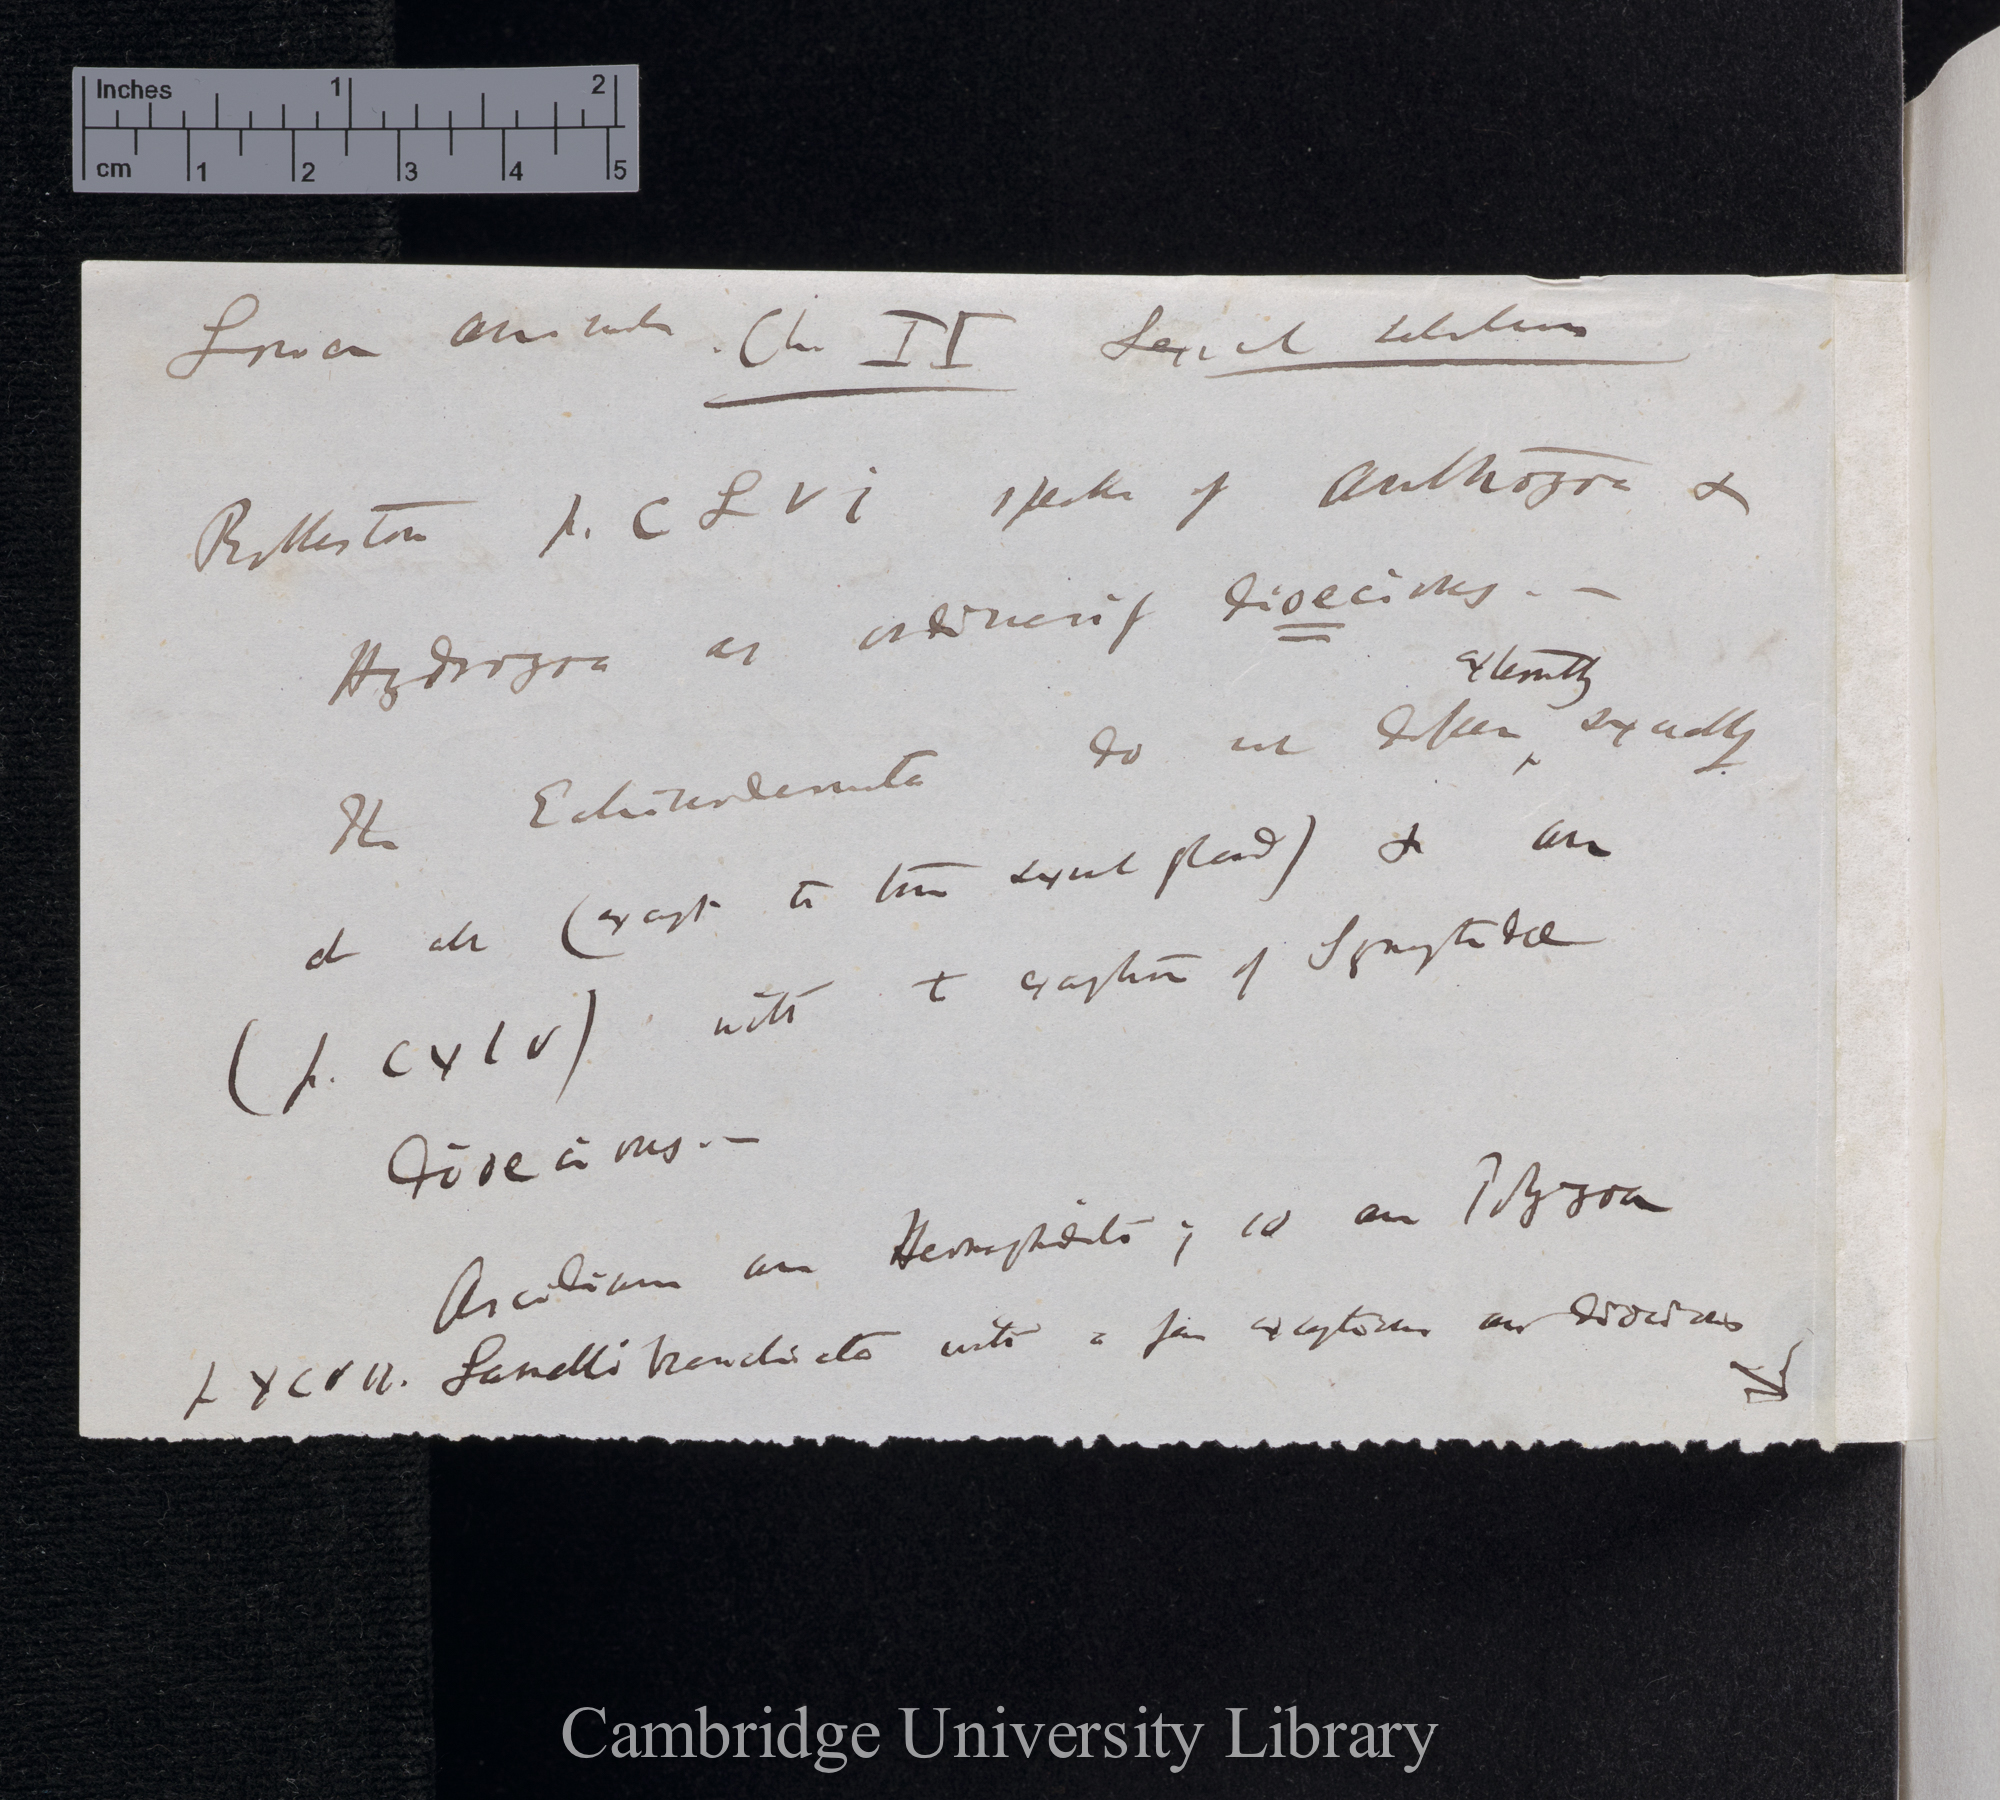 Inches 1 2
cm 1 2 3 4 5
Lower animals. Ch II Sexual relations
Rolleston p. CLVi speaks of Anthozoa &
Hydrozoa as ordinarily dioecious. —
externally
The Echinodermata do not differ sexually
at all (except in their sexual gland) & are
(p. cxlv) with + exception of Synaptidae
dioecious. —
Ascidians are Hermaphrodite; so are Polyzoa
p xcvii. Lamellibranchiata with a few exceptions are dioecious
Cambridge University Library